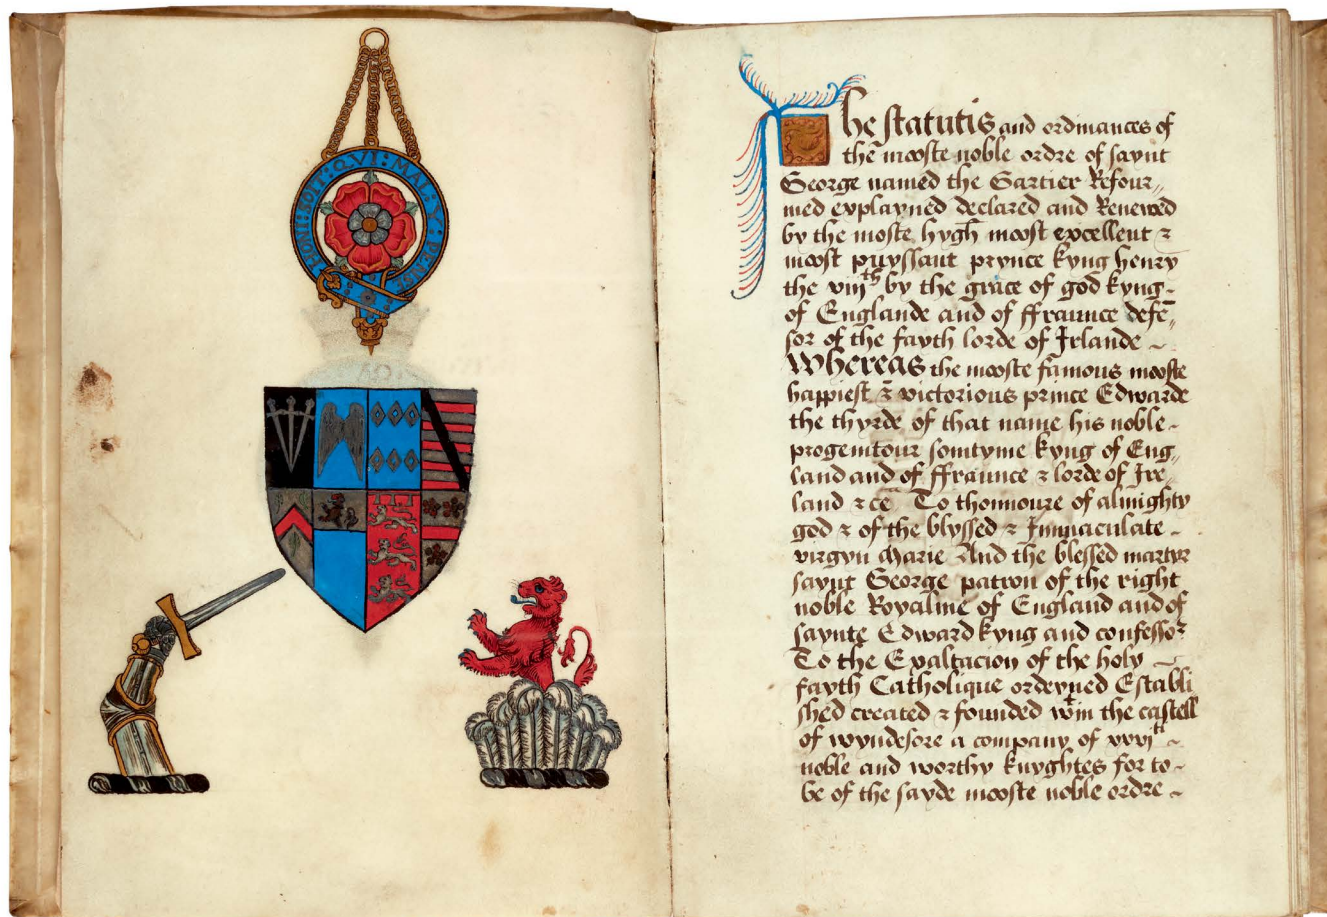 HONI:SOIT:QVI:MAL:Y:PENSE
The statutis and ordinances of
the mooste noble ordre of saynt
George named the Gartier Refour„
med explayned declared and Renewed
by the moste hygh moost excellent ⁊
moost puyssant prynce kyng henry
the viijth by the grace of god kyng -
of Englande and of ffraunce defē„
sor of the fayth lorde of Irlande ~
Whereas the mooste famous mooste
happiest ⁊ victorious prince Edwarde
the thyrde of that name his noble -
progenitour somtyme kyng of Eng„
land and of ffraunce ⁊ lorde of Ire„
land ⁊ cē To thonnoure of almighty
god ⁊ of the blyssed ⁊ Immaculate -
virgyn Marie And the blessed martyr
saynt George patron of the right
noble Royalme of England and of
saynte Edward kyng and confessor
To the Exaltacion of the holy ~
fayth Catholique ordeyned Establi
shed created ⁊ founded wtin the castell
of wyndesore a company of xxvjti ~
noble and worthy knyghtes for to -
be of the sayde mooste noble ordre ~